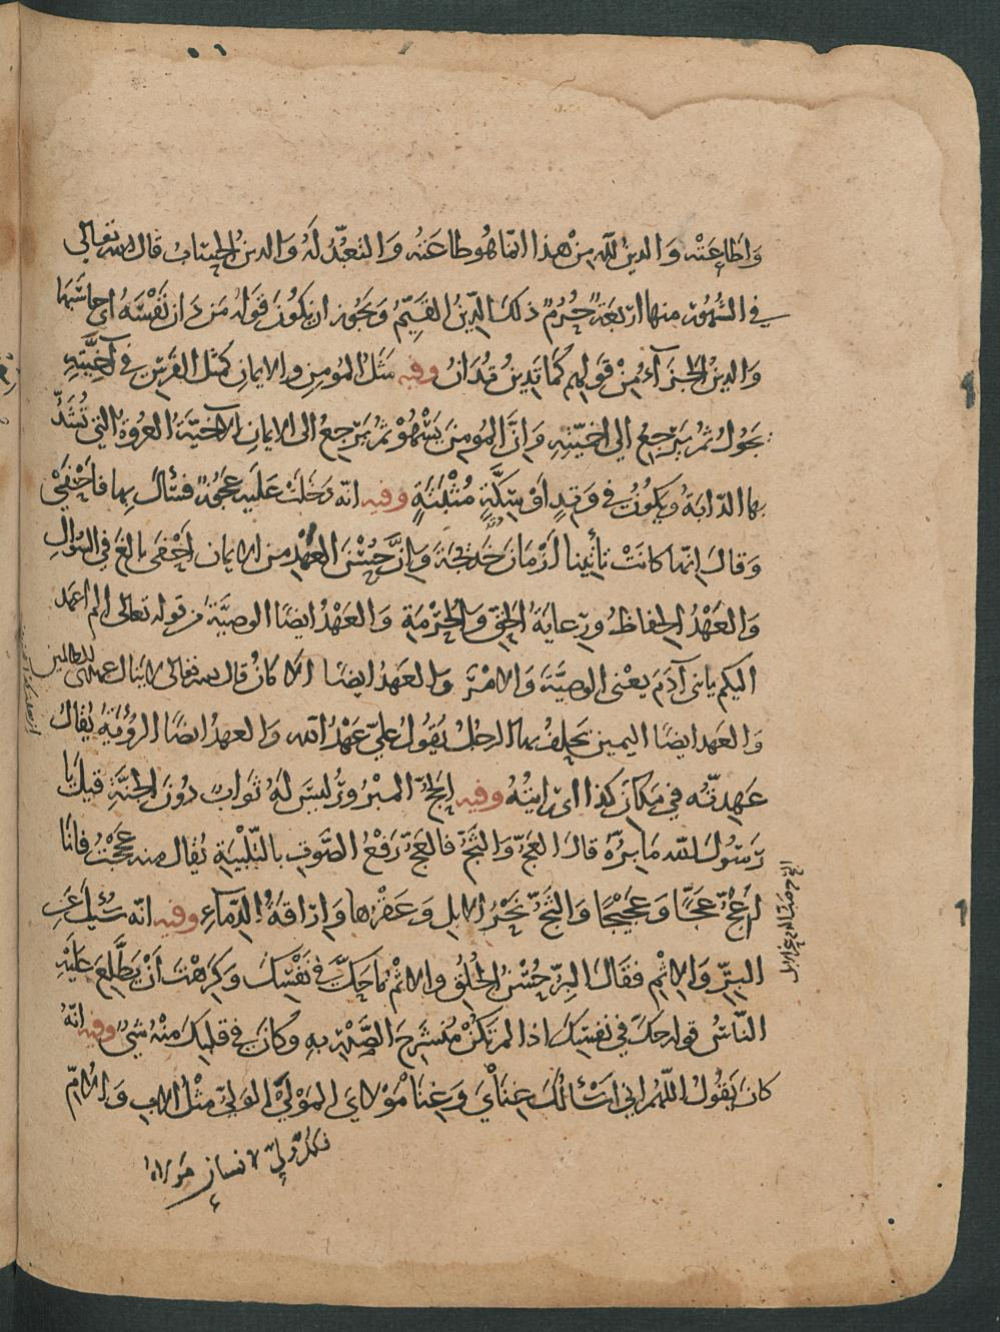 وَاطَاعَتْه وَالدين لله مِنْ هذا انما هُو طاعَتُه وَالتعبُّدُ لَهُ وَالدينُ الحِسَابُ قال الله تعالى
في الشُهُور منها اربَعَة حُرُم ذلك الدّينُ القَيِّمُ وَيَجُوز ان يكُونَ قَولُه مَن دَانَ نَفْسَهُ اى حاسَبَها
وَالدينُ الجَزَآءُ مِنْ قَولهم كَمَا تَدِينُ تُدَانُ وفيه مَثَلُ المؤمِن والايمان كمثَل الفَرَس في آخِيَّتِهِ
يَجُولُ ثُم يَرجعُ الى اخيّتِهِ وَانَّ المُومنَ يَسْهُو ثم يَرجعُ الى الايمانِ الآخيَّةُ العُروَةُ التي تُشَدُّ
بها الدّابَةُ ويكُونُ في وَتِدٍ اَوْ سِكَّةٍ مُثْبَتَةٍ وفيه انّه دَخَلَتْ عَلَيه عَجُوزٌ فسَأل بها فاَحْفَى
وَقالَ انّها كانَتْ تأتينا اَزْمَانَ خَديجَةَ وَاِنَّ حُسْنَ العَهْدِ من الايمان اَحْفَى بالَغَ في السُوالِ
وَالعَهْدُ الحِفاظُ ورِعايَةُ الحَقّ وَالحُرْمَةِ وَالعَهْدُ ايضًا الوصِيَّةُ من قوله تعالى الم اعهد
اليكم يا بنى آدَمَ يَعْنى الوصِيَّةَ وَالامْرَ وَالعَهدُ ايضًا الامَانُ قال الله تعالى لا ينال عهدى الظالمين
وَالعَهد ايضًا اليمين يَحلِفُ بها الرجُل يَقُولُ عَليَّ عَهْدُ الله وَالعهدُ ايضًا الرُؤيَةُ يُقالُ
عَهِدتُه في مَكَانِ كذا اى رَايتُهُ وفيه الحَجُّ المبْرُورُ ليسَ لَهُ ثَوابٌ دُونَ الجَنَّةِ قيلَ يا
رَسُولَ الله مَا بِرُّهُ قالَ العَجّ وَالثَجّ فالعَجّ رَفْعُ الصَّوتِ بالتَّلْبِيَةِ يُقال منه عَجَجْتُ فانَا
اَعِجُّ عَجًّا وَعَجيجًا وَالثَجّ نَحْرُ الابِلِ وَغيْرها وَاِرَاقَةُ الدِّمَآءِ وفيه انّه سُئِلَ عَنِ
البِرِّ وَالاِثمِ فقَالَ البِرُّ حُسْنُ الخُلُقِ وَالاثْمُ مَا حَكَّ في نَفْسِكَ وَكَرِهْتَ اَنْ يَطَّلِعَ عَلَيْهِ
النّاسُ قوله حَكَّ في نفسِكَ اذا لم تَكُنْ مُنشَرِحَ الصَّدْرِ بهِ وَكانَ في قلبكَ منْهُ شيءٌ وفيه انّهُ
كانَ يَقُولُ اللّهُمّ انى اَسْئَالُكَ غِنَايَ وَغِنَا مَوْلايَ المَوْلَى الوَليّ مثْلُ الابِ وَالامِّ
فكُلّ وليّ لانسان مولاه